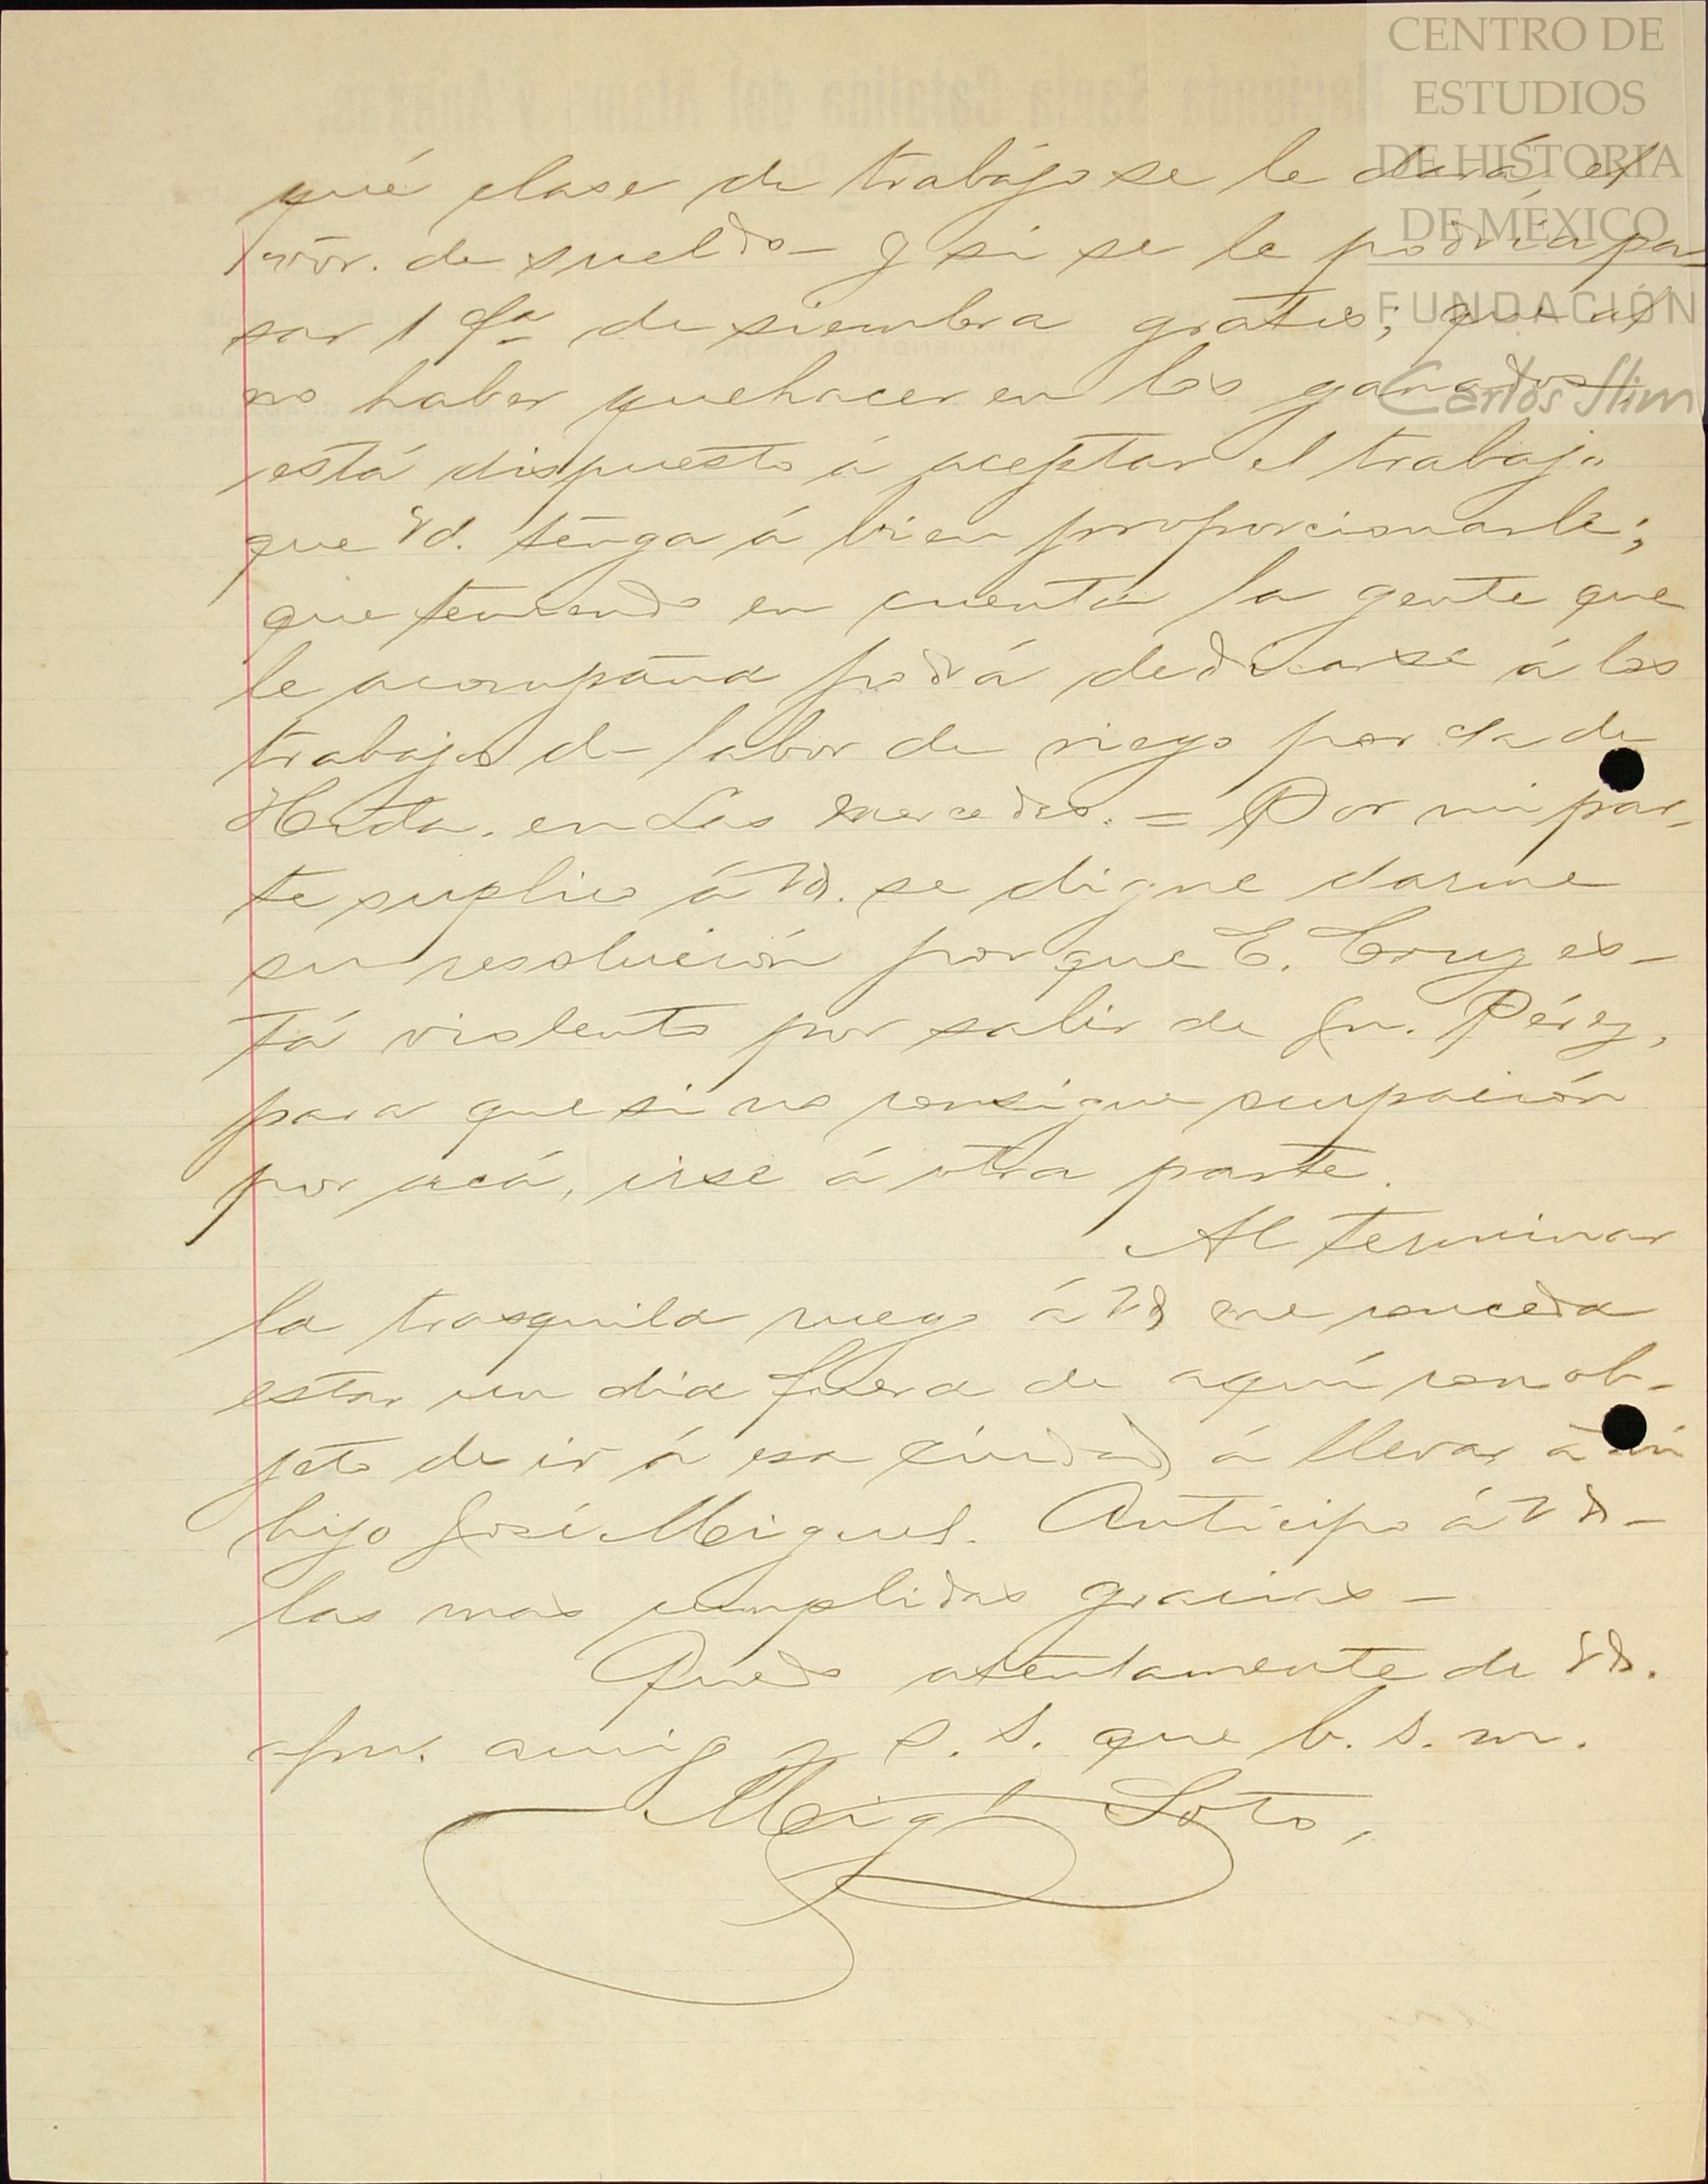 CENTRO DE
ESTUDIOS
DE HISTORIA
DE MÉXICO
FUNDACIÓN
Carlos Slim
qué clase de trabájo se le dará, el
de sueldo y si se le podría pa-
sar 1 fa. de siembra gratis; que al
no haber quehacer en los ganados,
está dispuesto á aceptar el trabajo
que Vd. tenga á bien proporcionarle;
que teniendo en cuenta la gente que
le acompaña podrá dedicarse á los
trabajos de labor de riego por cta de
Hcda. en Las Mercedes. = Por mi par-
te suplico á Vd. se digne darme
su resolución porque E. Cruz es-
tá violento por salir de Jn. Pérez,
para que si no consigue ocupación
por acá, irse á otra parte.
Al terminar
la trasquila ruego á Vd me conceda
estar un dia fuera de aquí con ob-
jeto de ir á esa ciudad á llevar á mi
hijo José Miguel. Anticipo á Vd-
las mas cumplidas gracias-
Quedo atentamente de Vd.
afmo. amigo y S. S. que b. s. m.
Migl Soto,